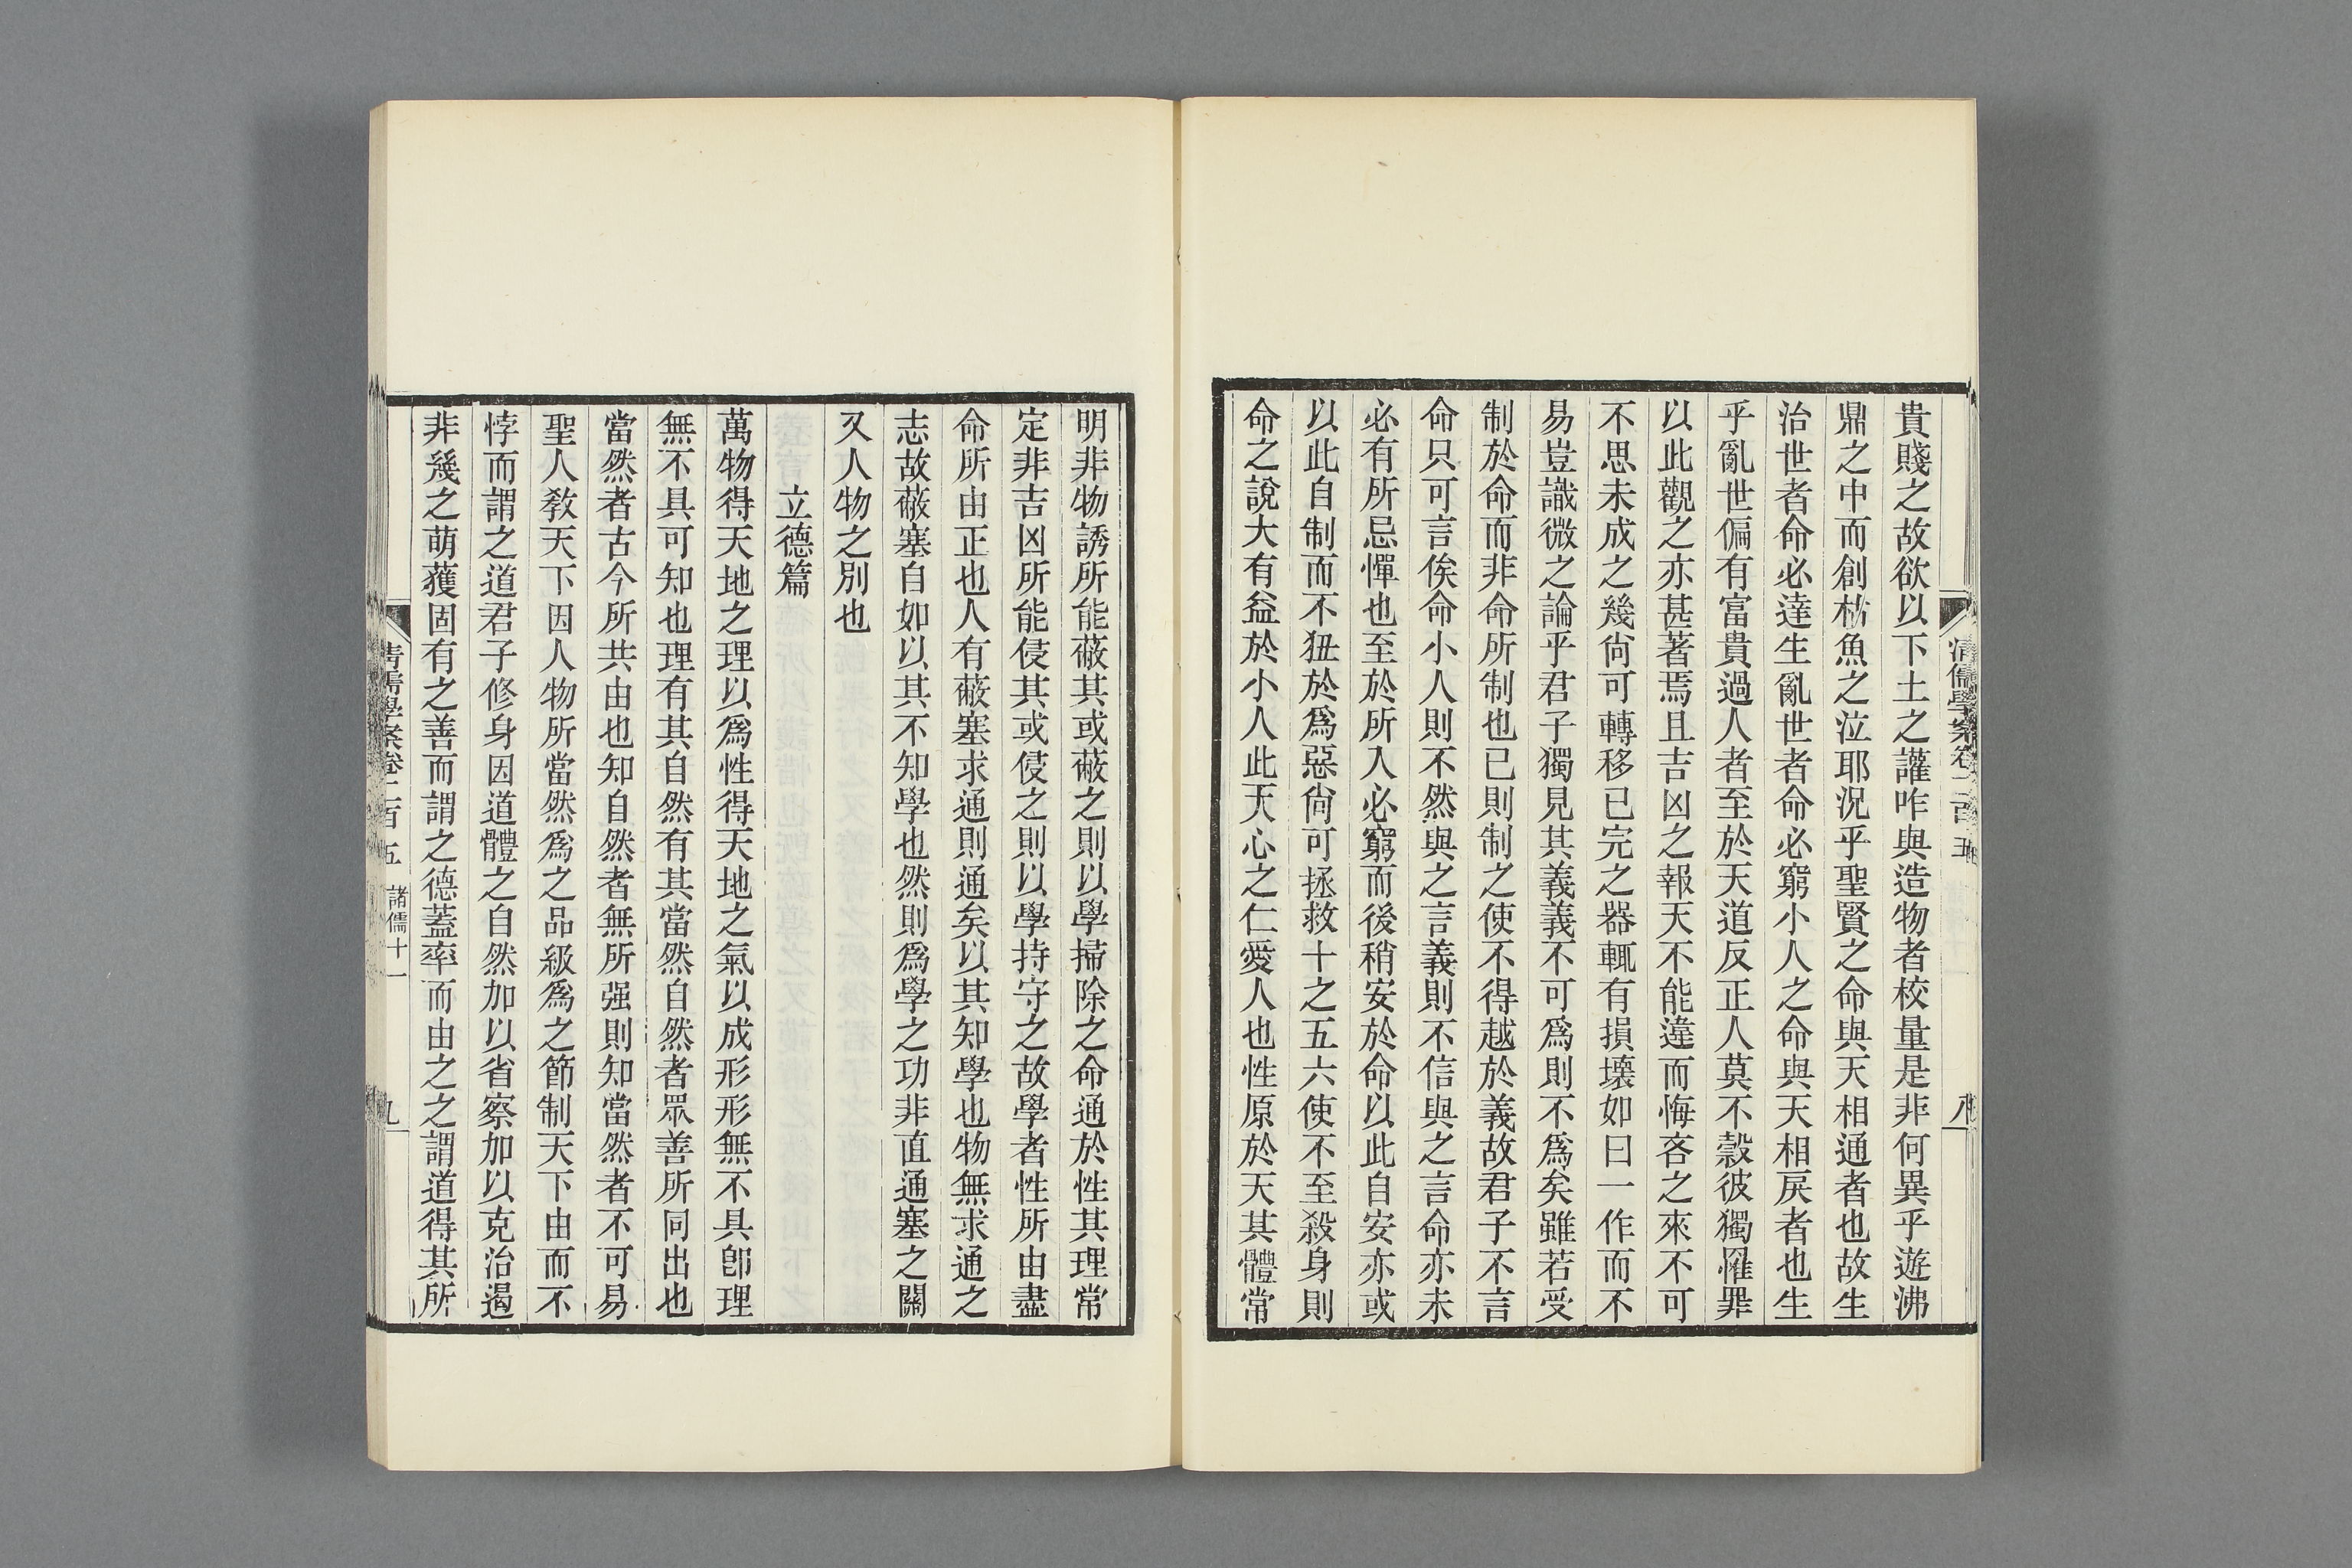 清儒學案卷二百五
八
貴賤之故欲以下土之讙咋與造物者校量是非何異乎遊沸
鼎之中而創枯魚之泣耶況乎聖賢之命與天相通者也故生
治世者命必達生亂世者命必窮小人之命與天相戾者也生
乎亂世偏有富貴過人者至於天道反正人莫不穀彼獨罹罪
以此觀之亦甚著焉且吉凶之報天不能違而悔吝之來不可
不思未成之幾尙可轉移已完之器輒有損壞如曰一作而不
易豈識微之論乎君子獨見其義義不可爲則不爲矣雖若受
制於命而非命所制也已則制之使不得越於義故君子不言
命只可言俟命小人則不然與之言義則不信與之言命亦未
必有所忌憚也至於所入必窮而後稍安於命以此自安亦或
以此自制而不狃於爲惡尙可拯救十之五六使不至殺身則
命之說大有益於小人此天心之仁愛人也性原於天其體常
明非物誘所能蔽其或蔽之則以學掃除之命通於性其理常
定非吉凶所能侵其或侵之則以學持守之故學者性所由盡
命所由正也人有蔽塞求通則通矣以其知學也物無求通之
志故蔽塞自如以其不知學也然則爲學之功非直通塞之關
又人物之別也
立德篇
萬物得天地之理以爲性得天地之氣以成形形無不具卽理
無不具可知也理有其自然有其當然自然者眾善所同出也
當然者古今所共由也知自然者無所强則知當然者不可易
聖人敎天下因人物所當然爲之品級爲之節制天下由而不
悖而謂之道君子修身因道體之自然加以省察加以克治遏
非幾之萌蒦固有之善而謂之德蓋率而由之之謂道得其所
清儒學案卷二百五　諸儒十一
九